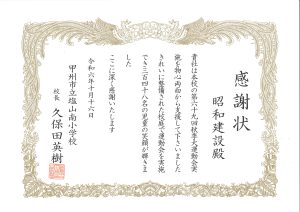 感謝状
昭和建設殿
貴社は本校の第六十九回秋季大運動会実
施を物心両面から支援して下さいました
きれいに整備された校庭で運動会を実施
でき三百四十八名の児童の笑顔が輝きま
した
ここに深く感謝いたします
令和六年十月十六日
甲州市立塩山南小学校
校長 久保田英樹